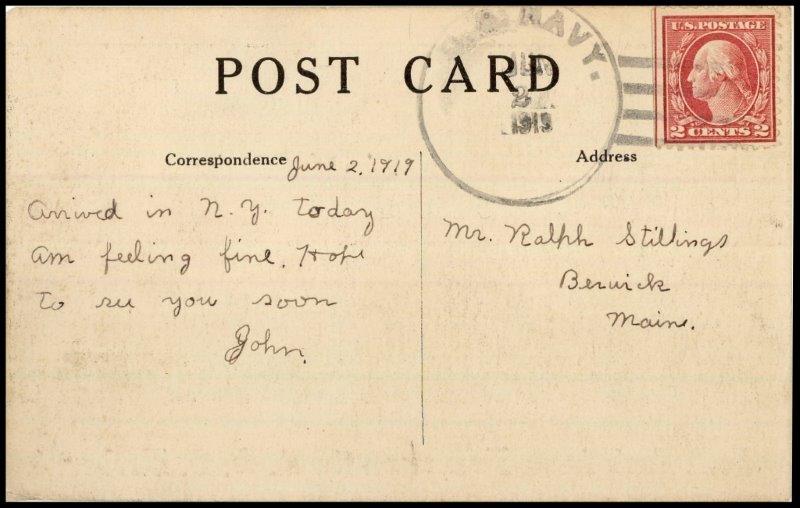 POST CARD
U.S. NAVY.
JUN
2
1919
U.S. POSTAGE
2 CENTS 2
Correspondence
June 2, 1919
Arrived in N.Y. today
am feeling fine. Hope
to see you soon
John.
Address
Mr. Ralph Stillings
Berwick
Maine.